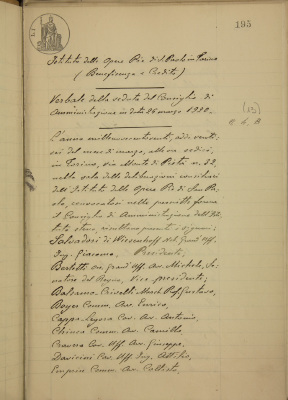 195
Istituto delle Opere Pie di S. Paolo in Torino
( Beneficenza e Credito )
Verbale della seduta del Consiglio di
Amministrazione in data 26 marzo 1920.
L'anno millenovecentoventi, addì venti-
sei del mese di marzo, alle ore sedici,
in Torino, via Monte di Pietà n. 32,
nella sala delle deliberazioni consiliari
dell'Istituto delle Opere Pie di San Pa-
olo, convocatosi nelle prescritte forme
il Consiglio di Amministrazione dell'Is-
tituto stesso, risultano presenti i signori:
Salvadori di Wiesenhoff Nob. Grand'Uff.
Ing. Giacomo, Presidente,
Bertetti Grand'Uff. Avv. Michele, Se-
natore del Regno, Vice presidente,
Balsamo Crivelli March. Prof. Gustavo,
Boyer Comm. Avv. Enrico,
Cappa Legora Cav. Avv. Antonio,
Comm. Avv. Camillo
Cravero Cav. Uff. Avv. Giuseppe,
Davicini Cav. Uff. Ing. Attilio,
Comm. Avv.